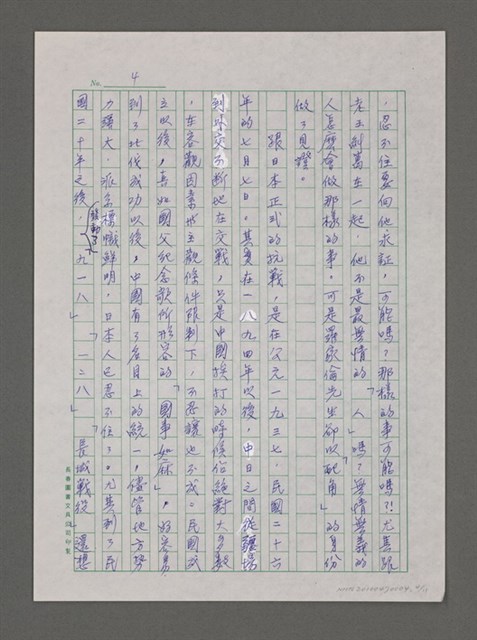 No. 4
，忍不住要向他求証，可能嗎？那樣的事可能嗎？！尤其跟
老王創萬在一起，他不是最無情的「人」嗎？無情無義的
人怎麼會做那樣的事。可是羅家倫先生卻以「配角」的身份
做了見證。
跟日本正式的抗戰，是在公元一九三七，民國二十六
年的七月七日。其實在一八九四年以後，中日之間從疆場
到外交不斷地在交戰，只是中國挨打的時候佔絕對大多數
，在客觀因素女主觀條件限制下，不忍讓也不成。民國成
立以後，真如國父紀念歌所形容的「國事如麻」，好容易
到了北伐成功以後，中國有了名目上的統一，儘管地方勢
力強大，派系標幟鮮明，日本人已忍不住了。尤其到了民
國二十年之後，發動了「九一八」「一二八」「長城戰役」還想